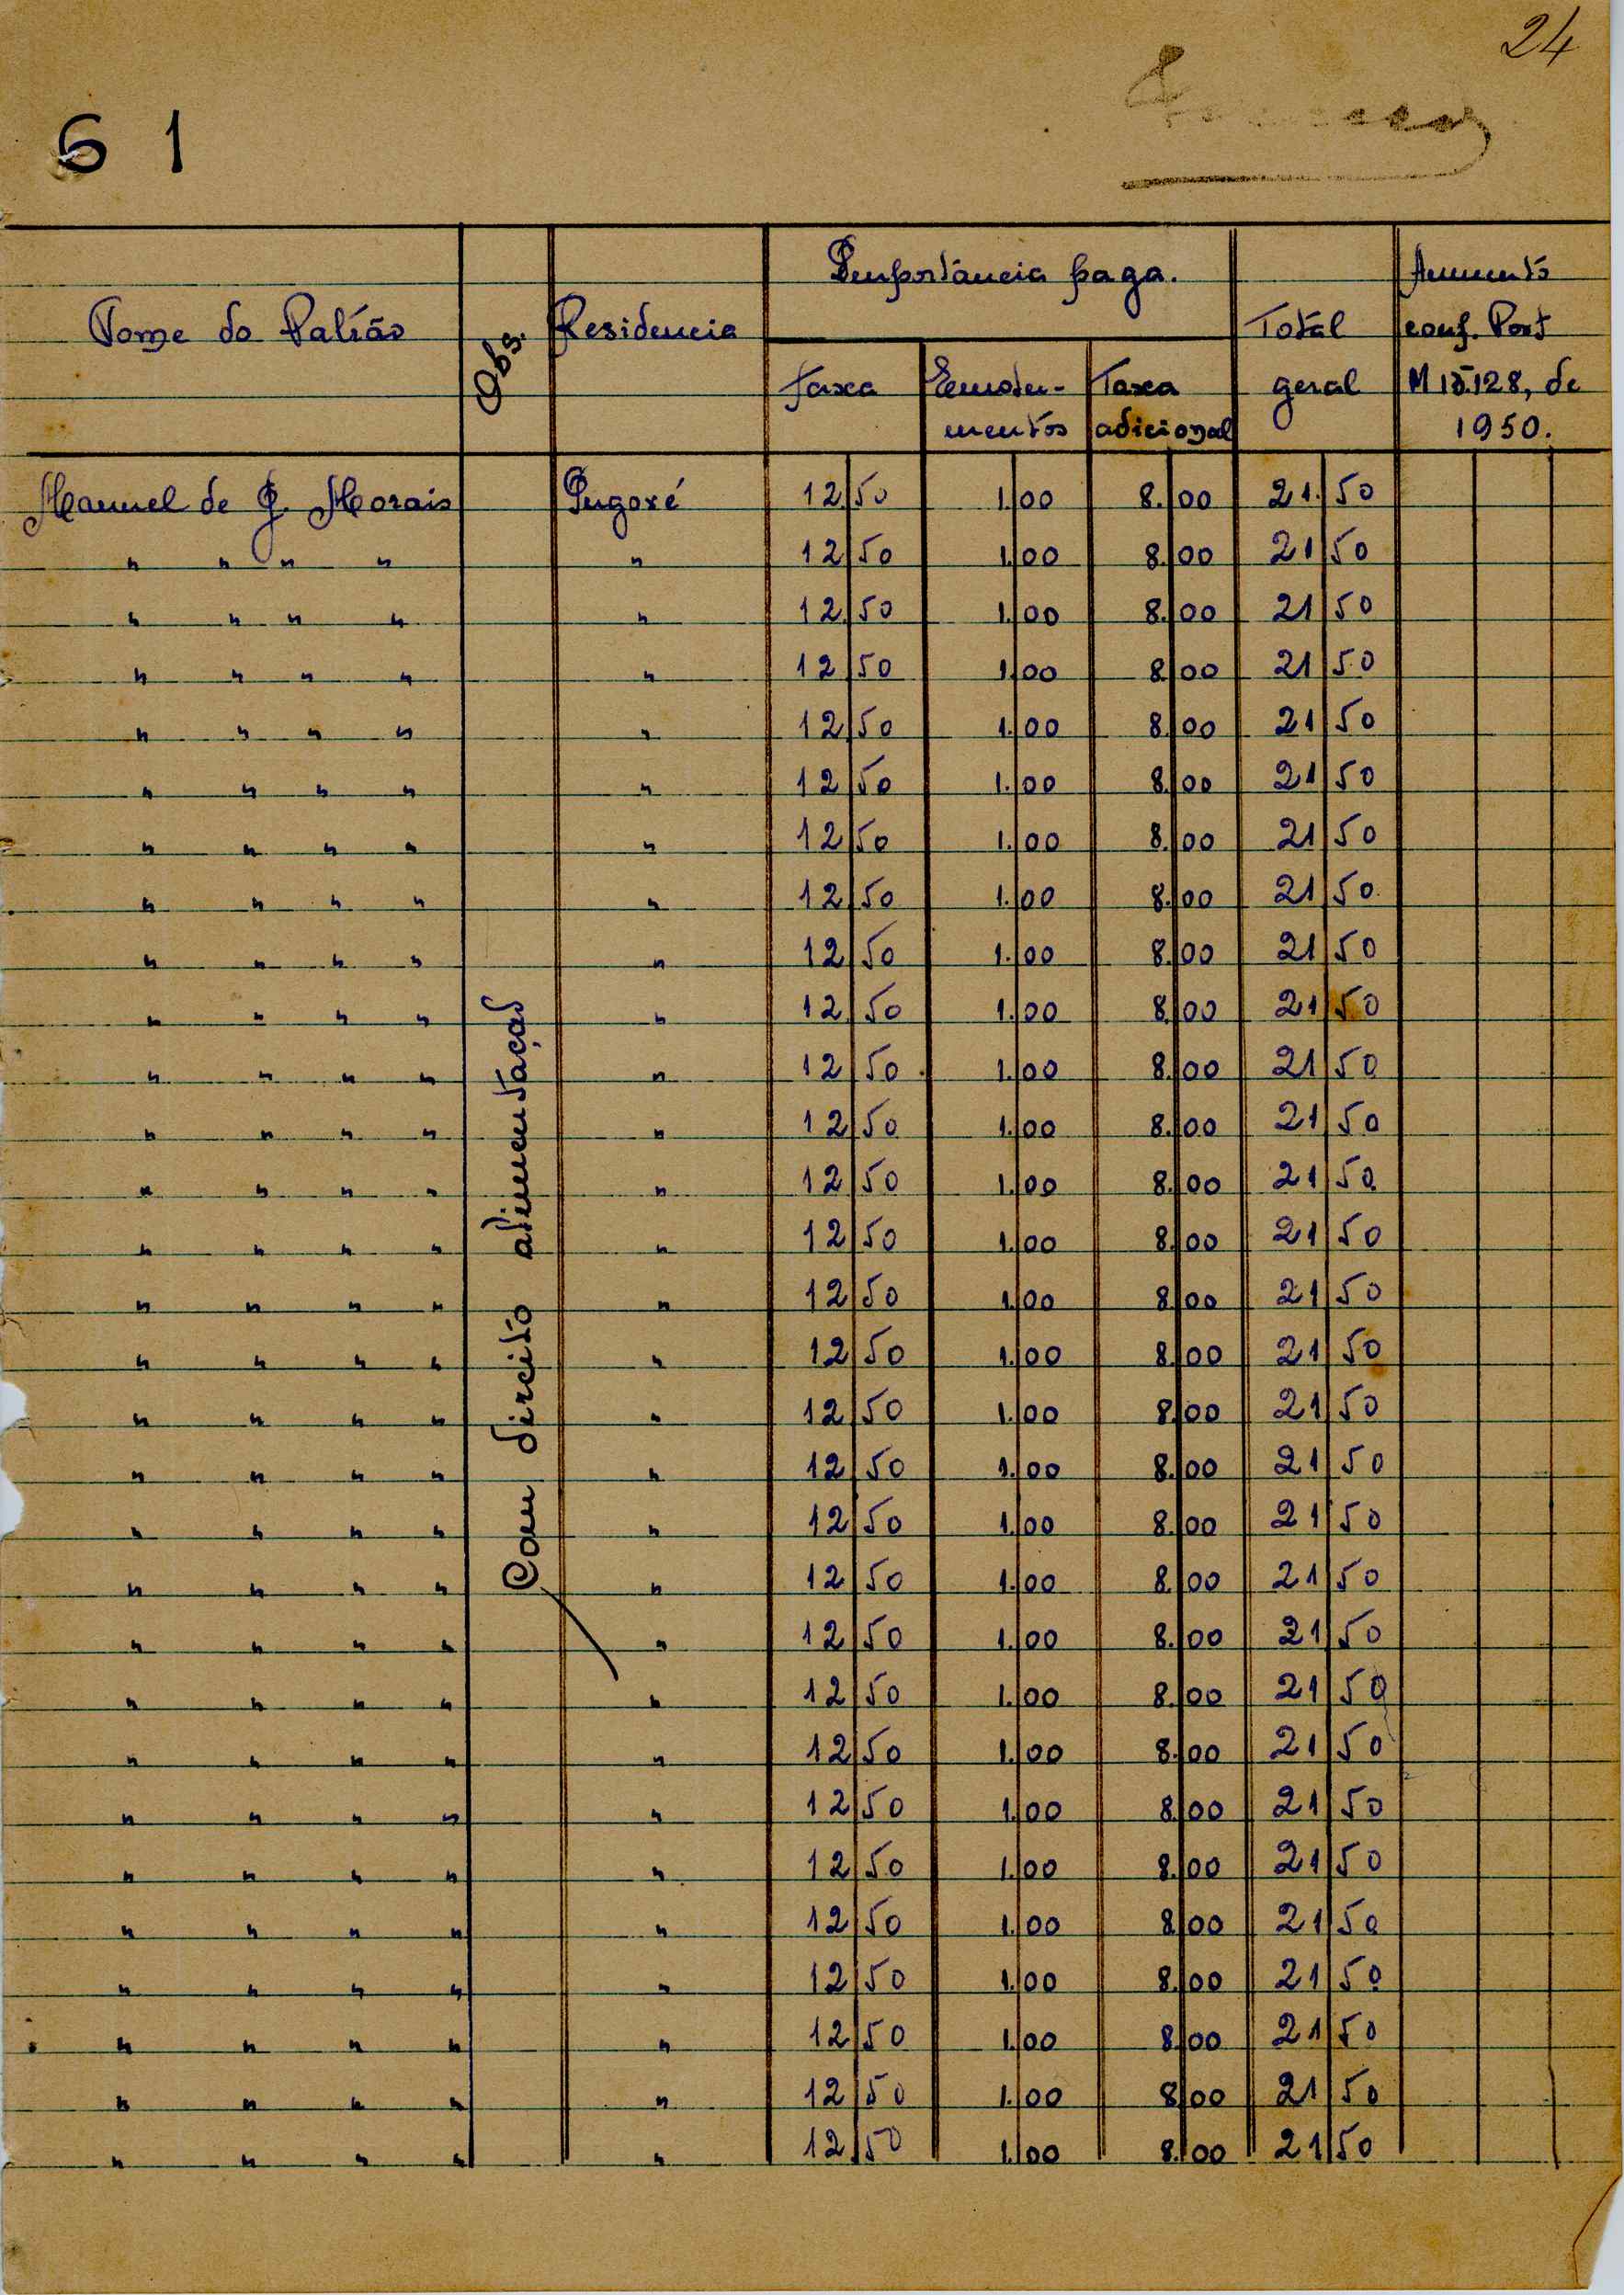 24
61
Nome do Patrão
Obs.
Residencia
Importância paga.
Taxa
Emolumentos
Taxa adicional
Total geral
Aumento conf. Port M 15.128, de 1950.
Com direito alimentação
Manuel de J. Morais Pugoré 12.50 1.00 8.00 21.50
" " " " " 12 50 1.00 8.00 21 50
" " " " " 12.50 1.00 8.00 21 50
" " " " " 12 50 1.00 8.00 21 50
" " " " " 12 50 1.00 8.00 21 50
" " " " " 12 50 1.00 8.00 21 50
" " " " " 12 50 1.00 8.00 21 50
" " " " " 12 50 1.00 8.00 21 50
" " " " " 12 50 1.00 8.00 21 50
" " " " " 12 50 1.00 8.00 21 50
" " " " " 12 50 1.00 8.00 21 50
" " " " " 12 50 1.00 8.00 21 50
" " " " " 12 50 1.00 8.00 21 50
" " " " " 12 50 1.00 8.00 21 50
" " " " " 12 50 1.00 8.00 21 50
" " " " " 12 50 1.00 8.00 21 50
" " " " " 12 50 1.00 8.00 21 50
" " " " " 12 50 1.00 8.00 21 50
" " " " " 12 50 1.00 8.00 21 50
" " " " " 12 50 1.00 8.00 21 50
" " " " " 12 50 1.00 8.00 21 50
" " " " " 12 50 1.00 8.00 21 50
" " " " " 12 50 1.00 8.00 21 50
" " " " " 12 50 1.00 8.00 21 50
" " " " " 12 50 1.00 8.00 21 50
" " " " " 12 50 1.00 8.00 21 50
" " " " " 12 50 1.00 8.00 21 50
" " " " " 12 50 1.00 8.00 21 50
" " " " " 12 50 1.00 8.00 21 50
" " " " " 12 50 1.00 8.00 21 50